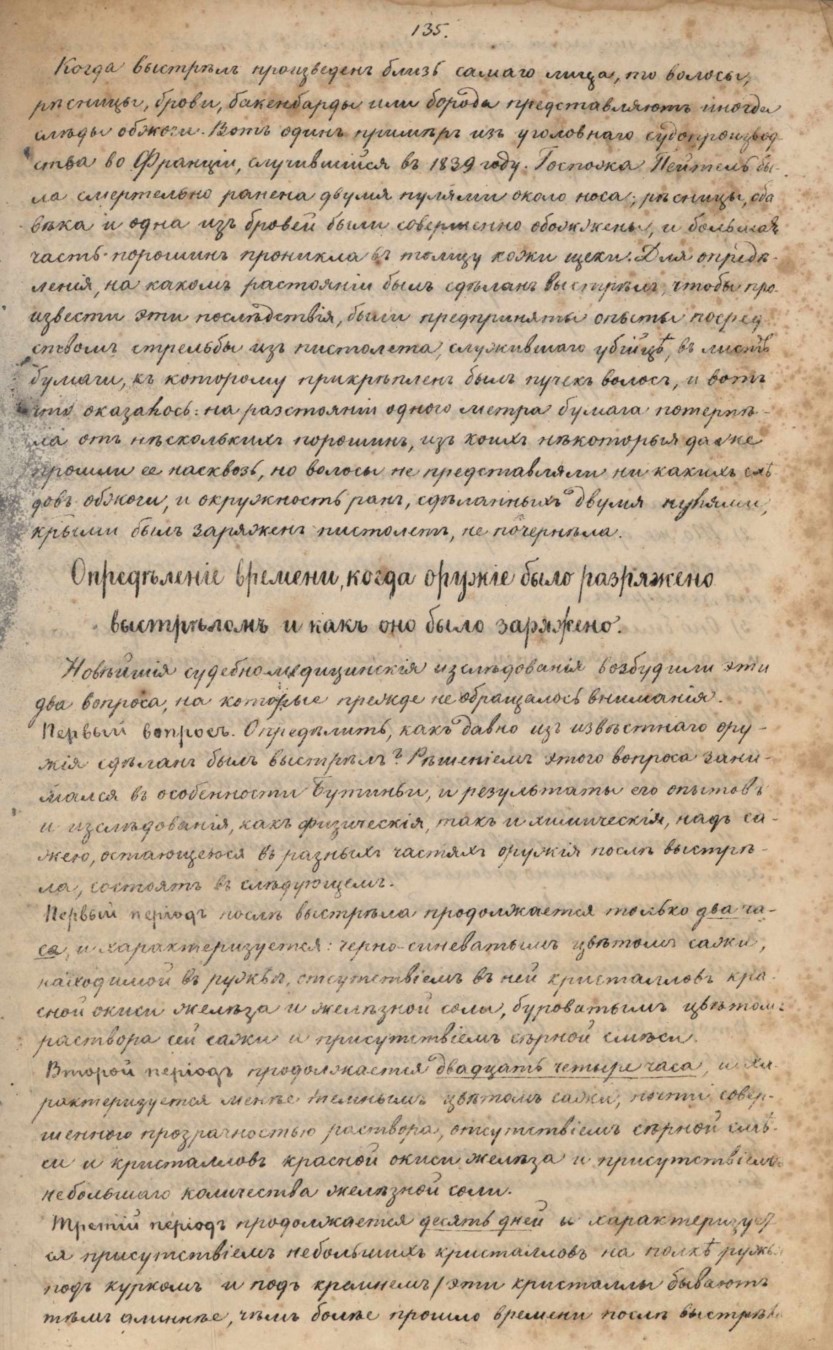 135.
Когда выстрѣлъ произведенъ близь самаго лица, то волосы,
рѣсницы, брови, бакенбарды или борода представляютъ иногда
слѣды обжоги. Вотъ одинъ примѣръ изъ уголовнаго судопроизвод
ства во Франціи, случившійся въ 1839 году. Госпожа Пейтель бы-
ла смертельно ранена двумя пулями около носа; рѣсницы, оба
вѣка и одна изъ бровей были совершенно обожжены, и большая
часть порошинъ проникла въ толщу кожи щеки. Для опредѣ-
ленія, на какомъ растояніи былъ сдѣланъ выстрѣлъ, чтобы про
извести эти послѣдствія, были предприняты опыты посред
ствомъ стрельбы изъ пистолета, служившаго убійцѣ, въ листъ
бумаги, къ которому прикрѣпленъ былъ пучекъ волосъ, и вотъ
что оказалось: на разстояніи одного метра бумага потерпѣ-
ла отъ нѣсколькихъ порошинъ, изъ коихъ нѣкоторыя даже
прошли ее насквозь, но волосы не представляли ни какихъ слѣ
довъ обжоги, и окружность ранъ, сдѣланныхъ двумя пулями,
крыми былъ заряженъ пистолетъ, не почернѣла.
Опредѣленіе времени, когда оружіе было разряжено
выстрѣломъ и какъ оно было заряжено.
Новѣйшія судебномедицинскія изслѣдованія возбудили эти
два вопроса, на которые прежде не обращалось вниманія.
Первый вопросъ. Опредѣлить, какъ давно изъ извѣстнаго ору-
жія сдѣланъ былъ выстрѣлъ? Рѣшеніемъ этого вопроса зани-
мался въ особенности Бутиньи, и результаты его опытовъ
и изслѣдованія, какъ физическія, такъ и химическія, надъ са-
жею, остающеюся въ разныхъ частяхъ оружія послѣ выстрѣ-
ла, состоятъ въ слѣдующемъ.
Первый періодъ послѣ выстрѣла продолжается только два ча-
са, и характеризуется: черно-синеватымъ цвѣтомъ сажи,
находимой въ ружьѣ, отсутствіемъ въ ней кристалловъ кра-
сной окиси желѣза и желѣзной соли, буроватымъ цвѣтомъ
раствора сей сажи и присутствіемъ сѣрной смѣси.
Второй періодъ продолжается двадцать четыре часа, и ха
рактеризуется менѣе темнымъ цвѣтомъ сажи, почти совер-
шенною прозрачностью раствора, отсутствіемъ сѣрной смѣ-
си и кристалловъ красной окиси желѣза и присутствіемъ
небольшаго количества желѣзной соли.
Третій періодъ продолжается десять дней и характеризует
ся присутствіемъ небольшихъ кристалловъ на полкѣ ружья
подъ куркомъ и подъ кремнемъ / эти кристаллы бываютъ
тѣмъ длиннѣе, чѣмъ болѣе прошло времени послѣ выстрѣла